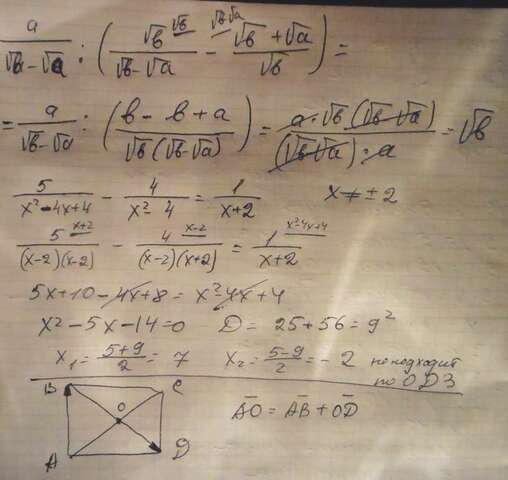 a/(√b - √a) : (√b^{√b}/(√b - √a) - ^{√b-√a}(√b + √a)/√b) =
= a/(√b - √a) : ((b - b + a)/(√b(√b - √a))) = (a · √b(√b - √a))/((√b - √a) · a) = √b
5/(x² - 4x + 4) - 4/(x² - 4) = 1/(x + 2)    x ≠ ± 2
5^{x+2}/((x-2)(x-2)) - 4^{x-2}/((x-2)(x+2)) = 1^{x²-4x+4}/(x+2)
5x + 10 - 4x + 8 = x² - 4x + 4
x² - 5x - 14 = 0    D = 25 + 56 = 9²
x₁ = (5+9)/2 = 7    x₂ = (5-9)/2 = -2 не подходит
по ОДЗ
B C
O
A D
AO = AB + OD